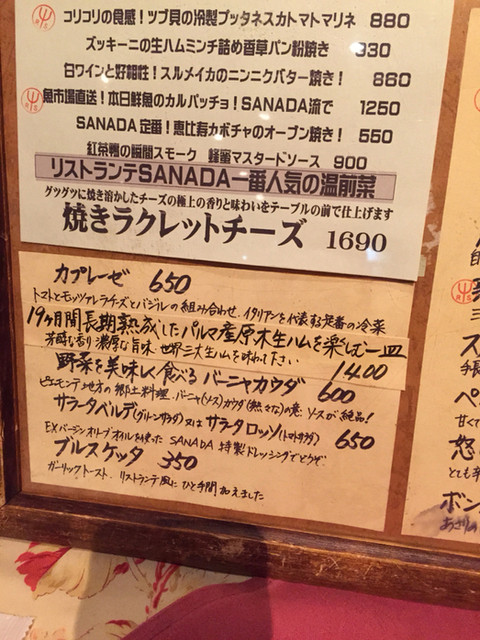 コリコリの食感！ツブ貝の冷製プッタネスカトマトマリネ 880
ズッキーニの生ハムミンチ詰め香草パン粉焼き 930
白ワインと好相性！スルメイカのニンニクバター焼き！ 860
魚市場直送！本日鮮魚のカルパッチョ！SANADA流で 1250
SANADA定番！恵比寿カボチャのオーブン焼き！ 550
紅茶鴨の瞬間スモーク 蜂蜜マスタードソース 900
リストランテSANADA一番人気の温前菜
グツグツに焼き溶かしたチーズの極上の香りと味わいをテーブルの前で仕上げます
焼きラクレットチーズ 1690
カプレーゼ 650
トマトとモッツァレラチーズとバジルの組み合わせ、イタリアンを代表する定番の冷菜
19ヶ月間長期熟成したパルマ産原木生ハムを楽しむ一皿
芳醇な香り濃厚な旨味 世界三大生ハムを味わって下さい 1400
野菜を美味しく食べる バーニャカウダ 600
ピエモンテ地方の郷土料理 バーニャ(ソース)カウダ(熱い)の意 ソースが絶品！
サラータベルデ(グリーンサラダ)又は サラタロッソ(トマトサラダ) 650
EXバージンオリーブオイルを使った SANADA特製ドレッシングでどうぞ
ブルスケッタ 350
ガーリックトースト、リストランテ風にひと手間加えました
怒
ボン